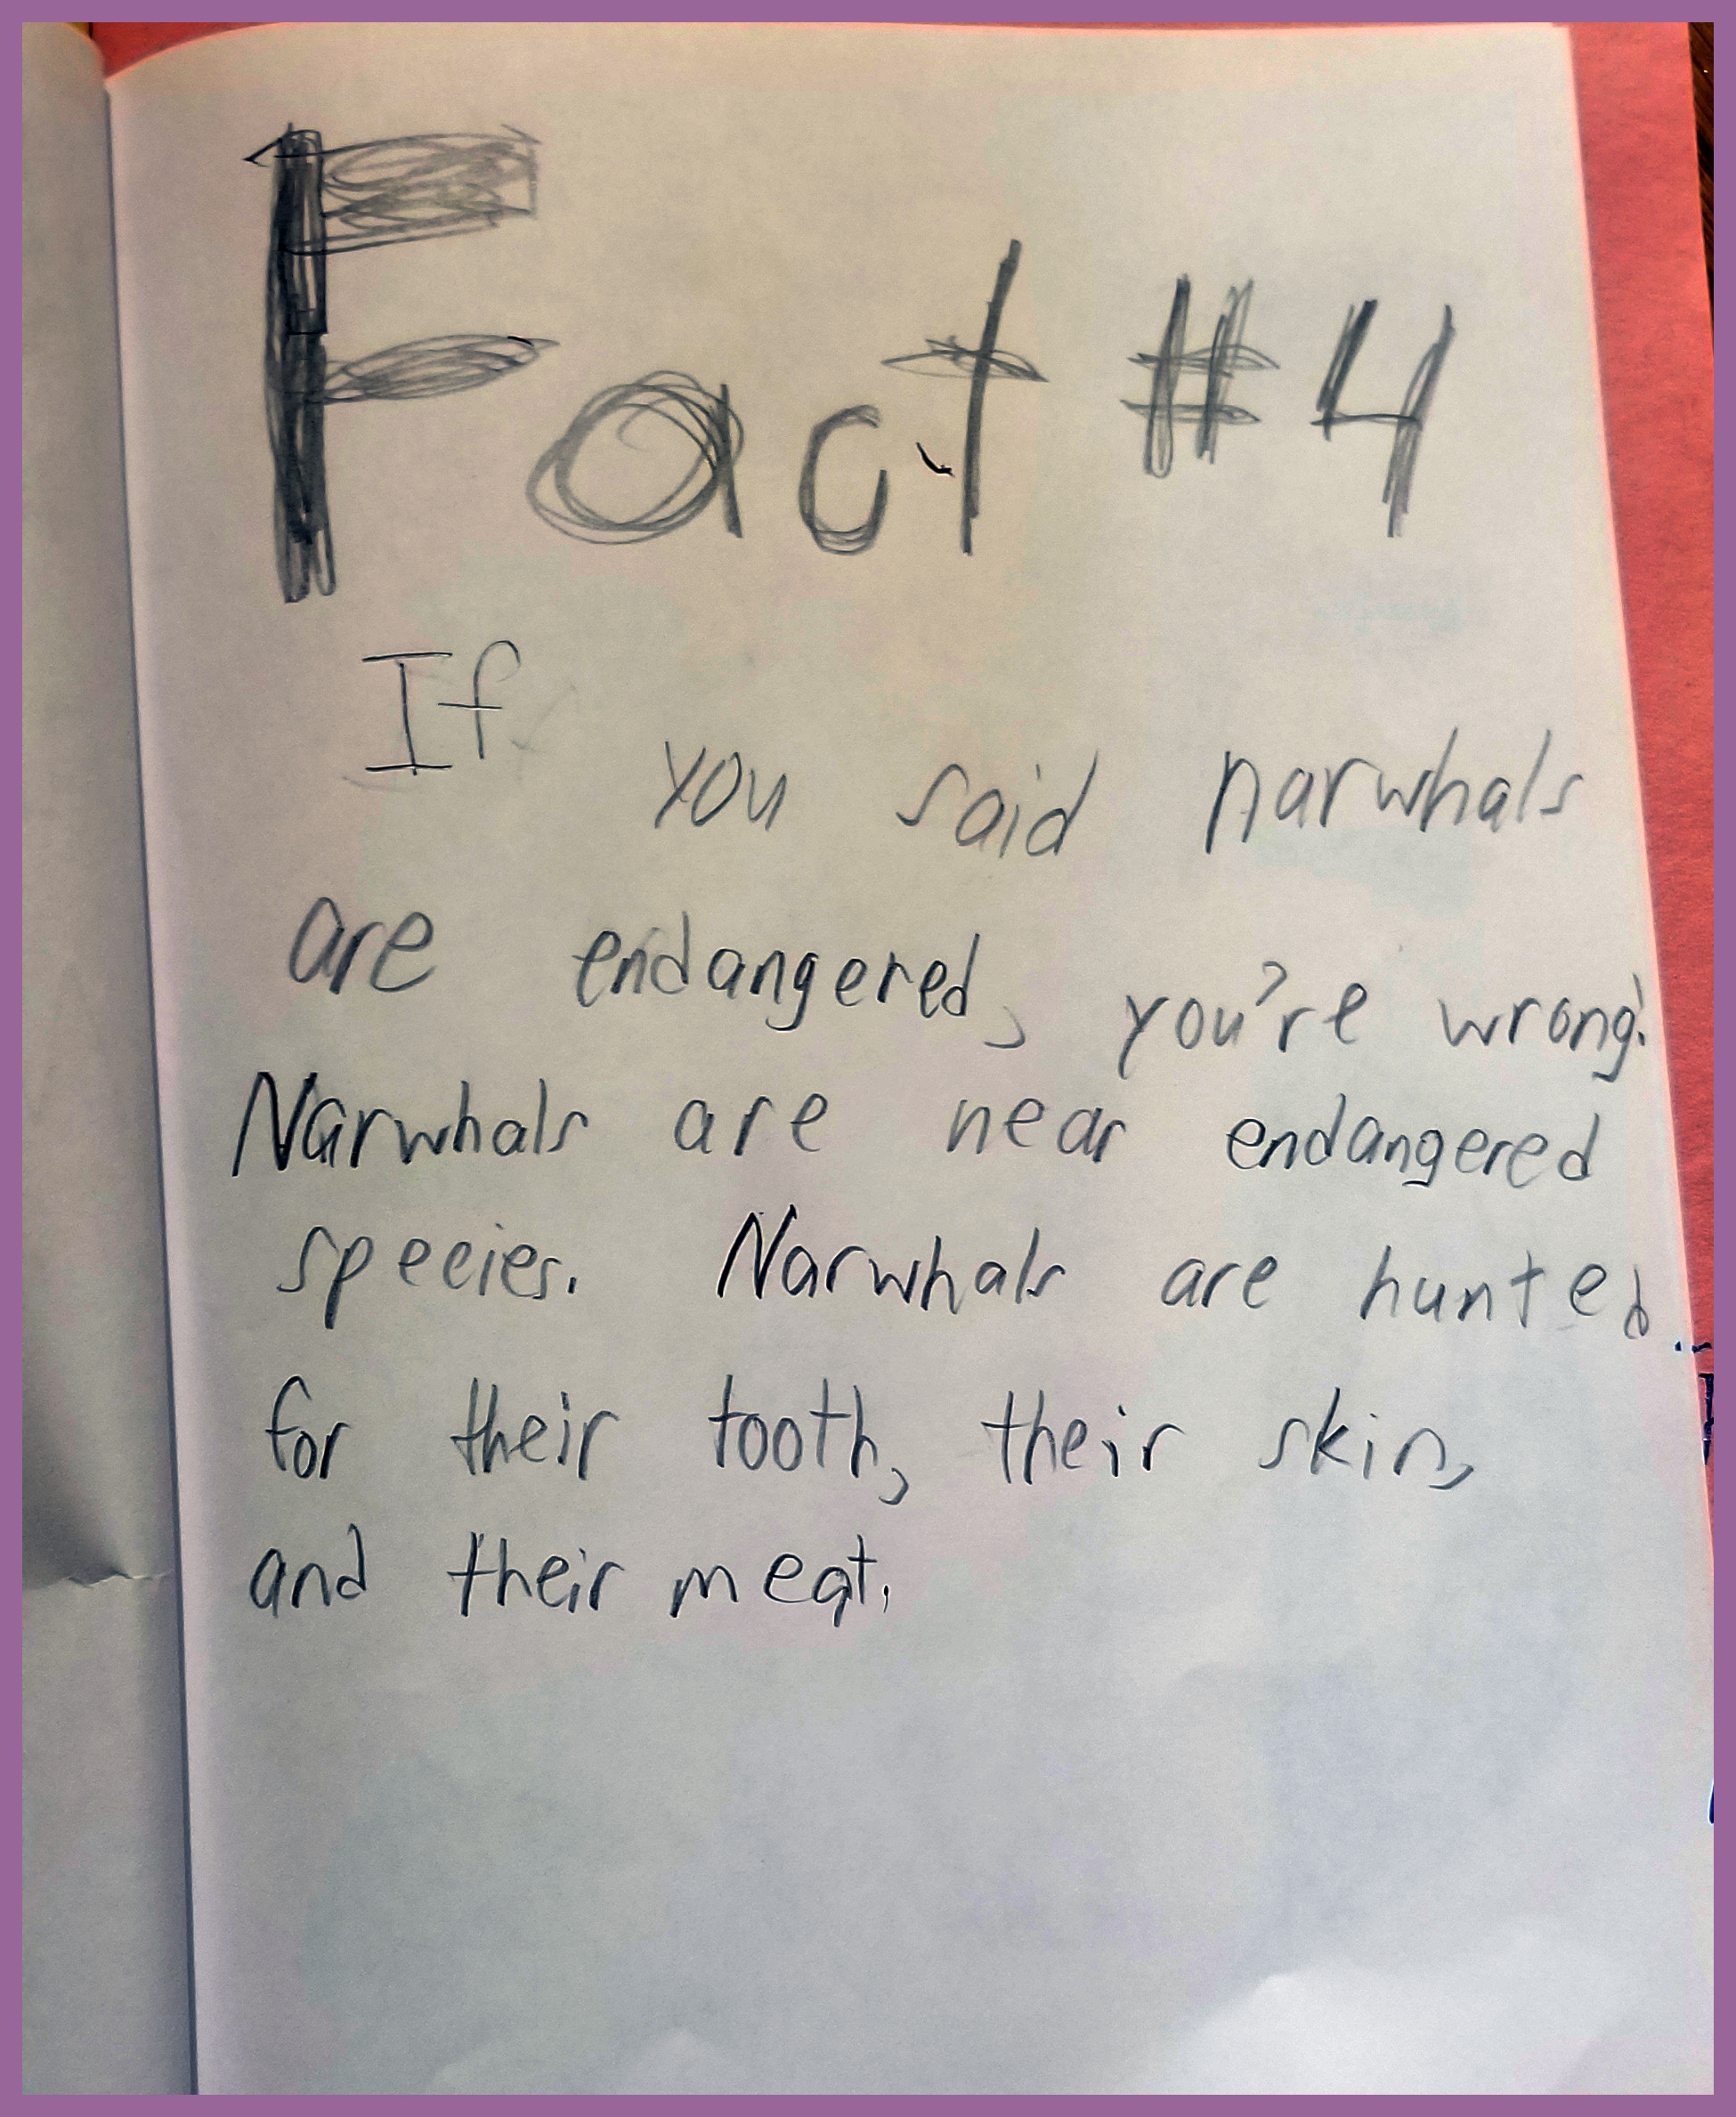 Fact #4
If you said narwhals
are endangered, you're wrong!
Narwhals are near endangered
speeies. Narwhals are hunted
for their tooth, their skin,
and their meat.